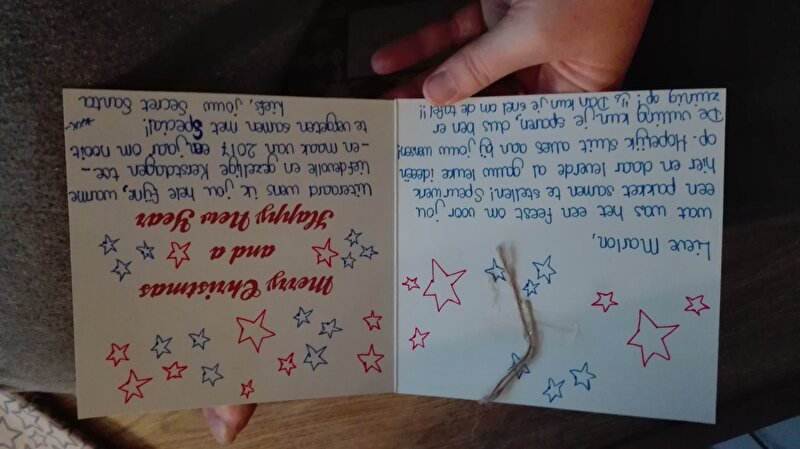 Lieve Marlon,
wat was het een feest om voor jou
een pakket samen te stellen! Speurwerk
hier en daar leverde al gauw leuke ideeën
op. Hopelijk sluit alles aan bij jouw wensen!
De vulling kun je sparen, dus ben er
zuinig op! Dan kun je snel om de tafel!!
Merry Christmas
and a
Happy New Year
Uiteraard wens ik jou hele fijne, warme
liefdevolle en gezellige Kerstdagen toe
- en maak van 2017 een jaar om nooit
te vergeten samen met Special!
Liefs, jouw Secret Santa